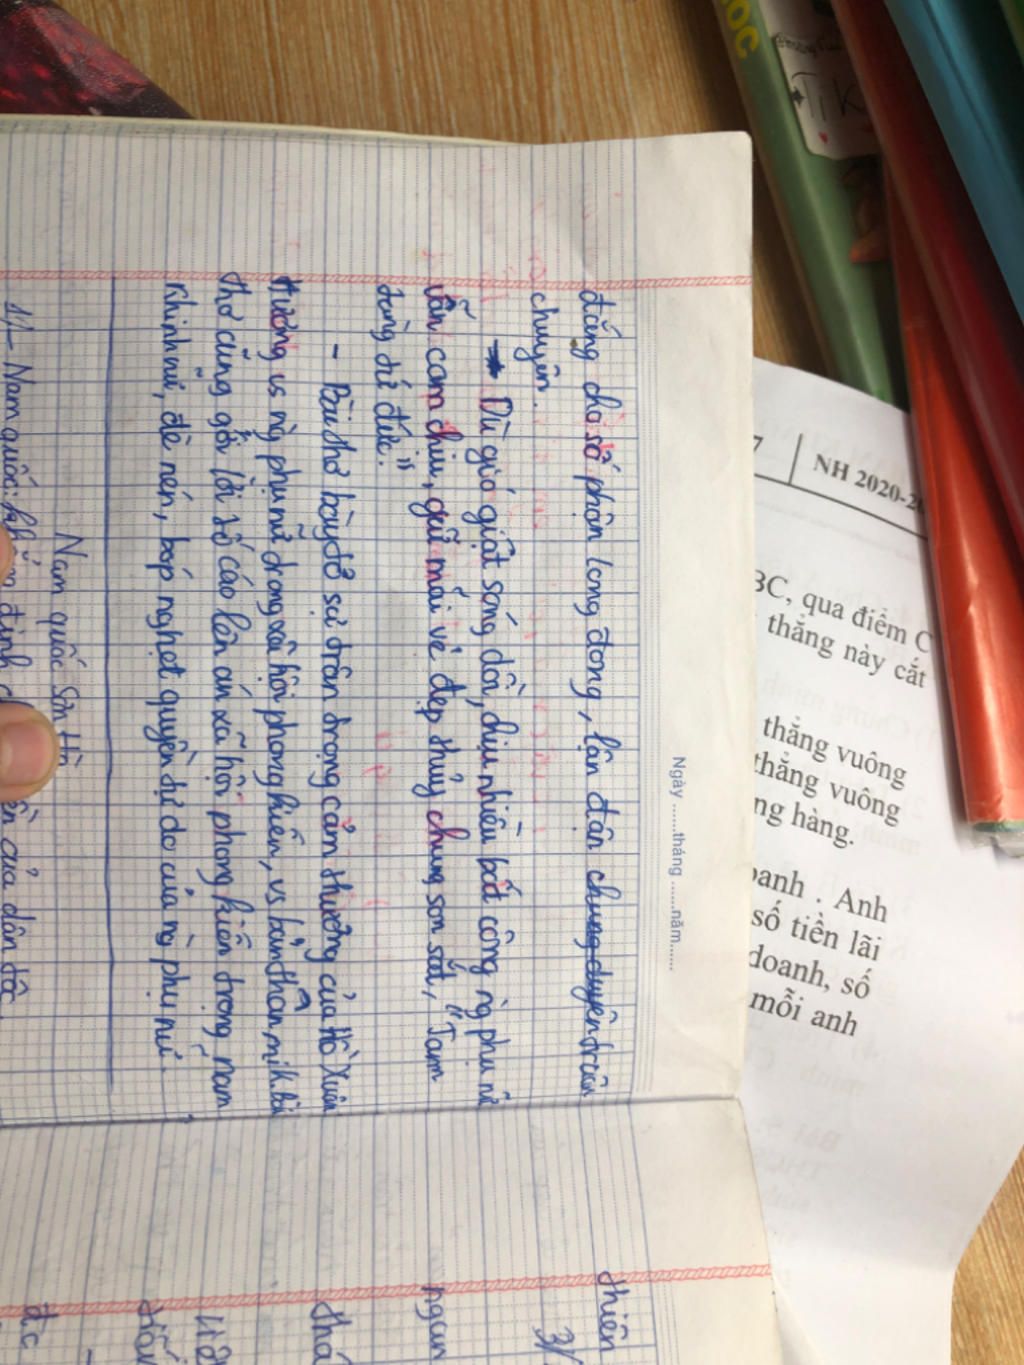 Ngày .......tháng .......năm.......
đắng cho số phận long đong, lận đận chung duyên truân
chuyên.
- Dù gió giật sóng dồi, chịu nhiều bất công ng phụ nữ
vẫn cam chịu, giữ mãi vẻ đẹp thủy chung son sắt, "Tam
tòng tứ đức".
- Bài thơ bày tỏ sự trân trọng cảm thương của Hồ Xuân
Hương vs ng phụ nữ trong xã hội phong kiến, vs bản thân mik. Bài
thơ cũng gởi lời tố cáo lên án xã hội phong kiến trọng nam
khinh nữ, đè nén, bóp nghẹt quyền tự do của ng phụ nữ.
Nam quốc sơn Hà
1/- Nam quốc:
định
của dân tộc
thiên
3/
ngan
thá
đ.c
HOC
TiK
7
NH 2020-2
BC, qua điểm C
thẳng này cắt
thẳng vuông
thẳng vuông
ng hàng.
oanh . Anh
số tiền lãi
doanh, số
mỗi anh